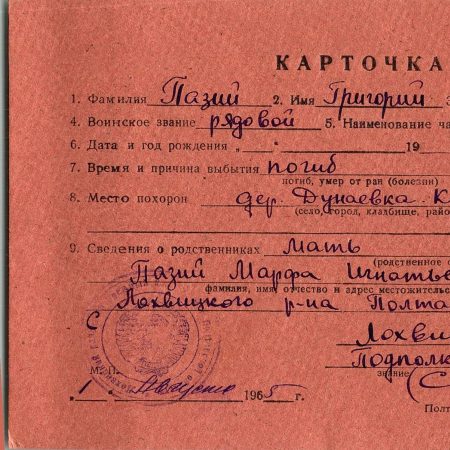 КАРТОЧКА
1. Фамилия Пазий 2. Имя Григорий 3
4. Воинское звание рядовой 5. Наименование ча
6. Дата и год рождения „ “ 19
7. Время и причина выбытия погиб
погиб, умер от ран (болезни)
8. Место похорон дер. Дунаевка К
(село, город, кладбище, райо
9. Сведения о родственниках мать
(родственное о
Пазий Марфа Игнатье
фамилия, имя, отчество и адрес местожительс
с Лохвицкого р-на Полта
Лохви
Подполк
М. П. звание (С
„1“ Августа 1965 г.
Полт